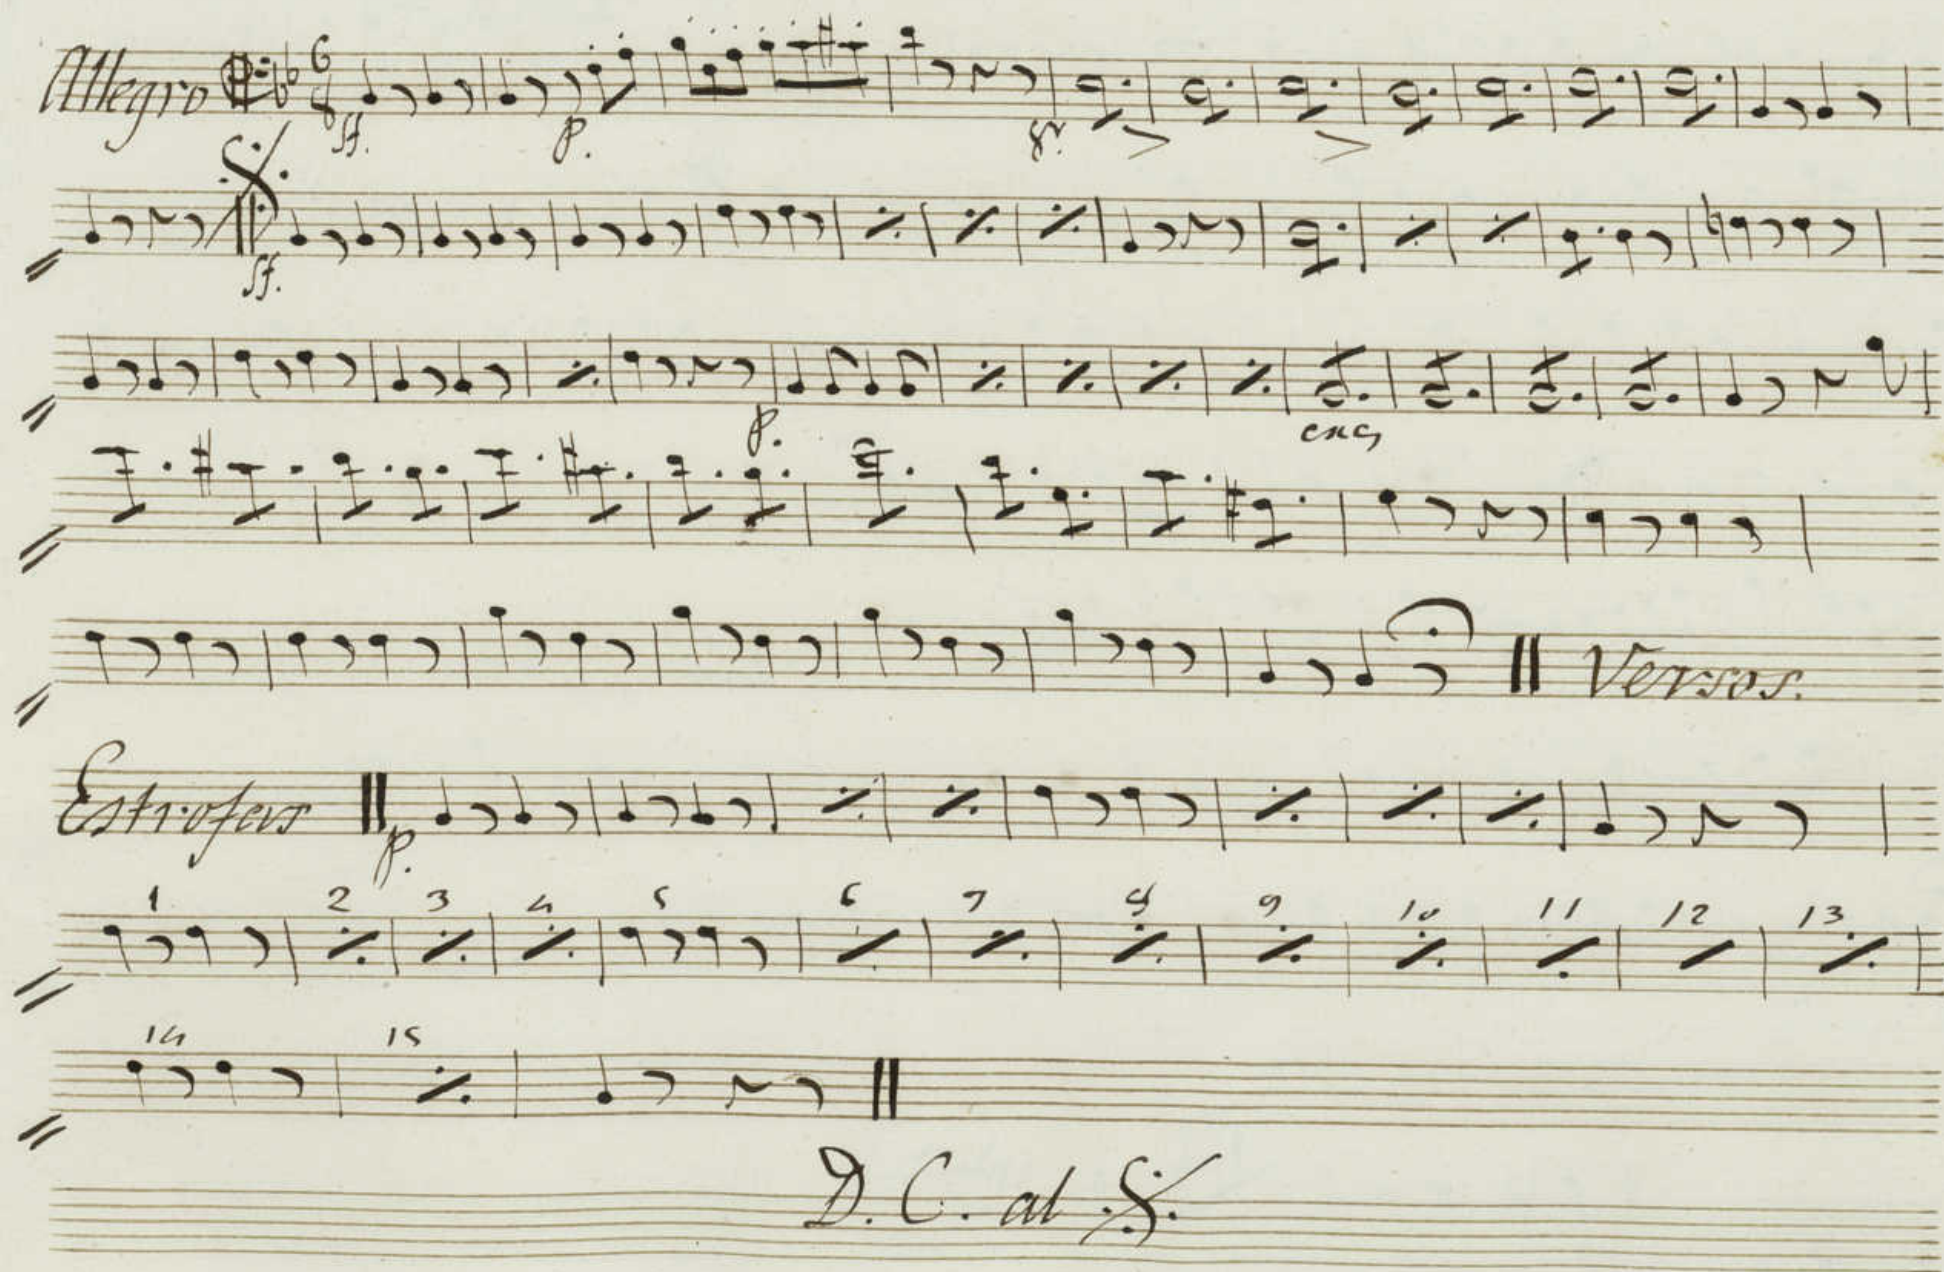 Allegro 6 8
sf. p. sf.
sf.
p. cres
Versos.
Estrofas p.
1 2 3 4 5 6 7 8 9 10 11 12 13
14 15
D. C. al